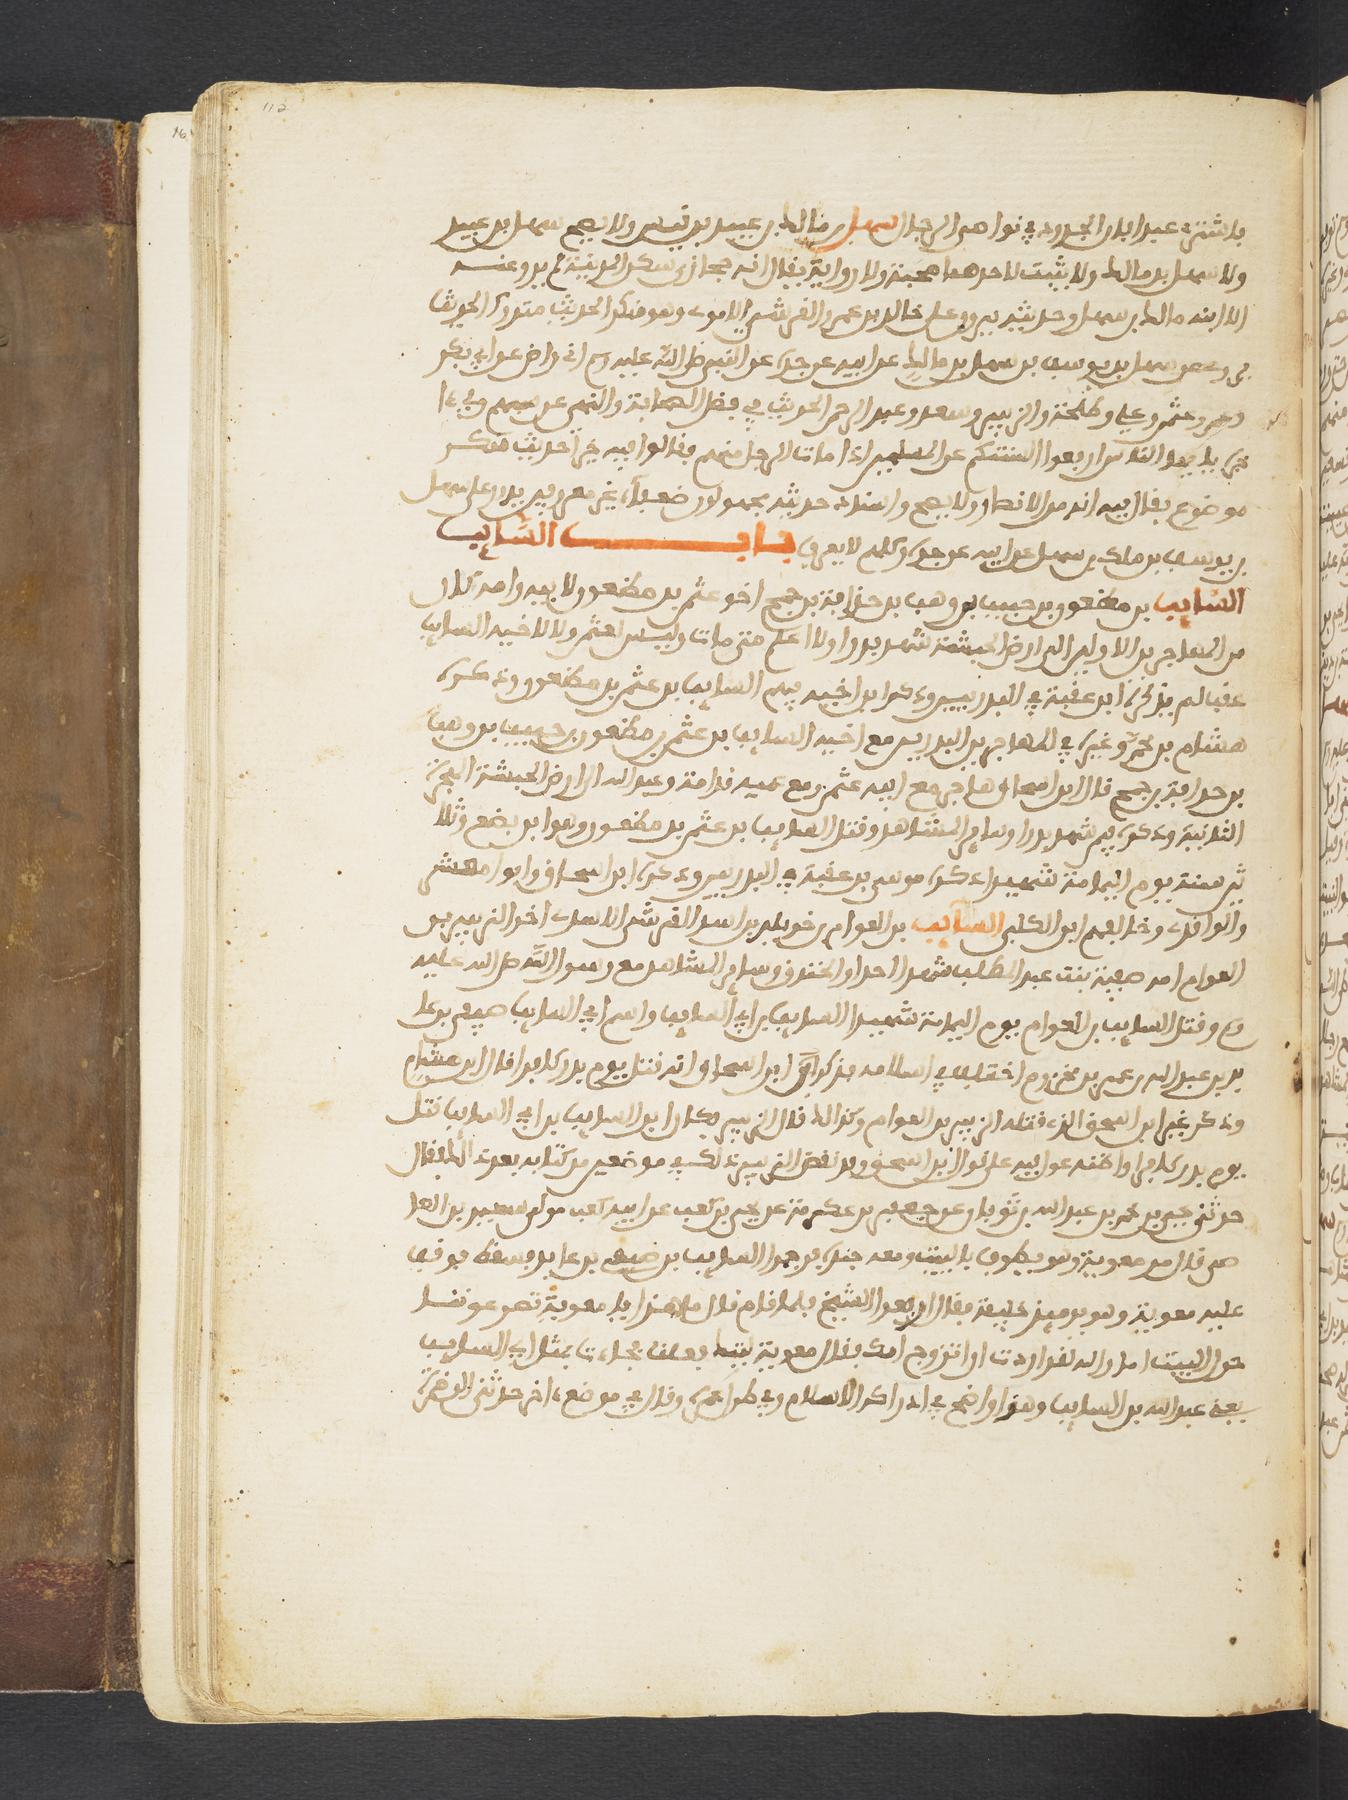 112
فاشترى عبدا بارا الجدود في نواهم الرجال سهل بن مالك بن عبيد بن قيس ولا يصح سهل بن عبيد
ولا سهل بن مالك ولا يثبت لاحدهما صحبة ولا رواية يقال انه حجازي سكن المدينة لم يرو عنه
الا ابنه مالك بن سهل وحديثه يدور على خالد بن عمرو القرشي الاموي وهو منكر الحديث متروك الحديث
يروي عن سهل بن يوسف بن سهل بن مالك عن ابيه عن جده عن النبي صلى الله عليه وسلم اني راض عن ابي بكر
وعمر وعثمن وعلي وطلحة والزبير وسعد وعبد الرحمن الحديث في فضل الصحابة والنهي عن سبهم وفي ءا
خره يا ايها الناس ارفعوا السنتكم عن المسلمين اذا مات الرجل منهم فقالوا فيه خيرا حديث منكر
موضوع يقال فيه انه من الانصار ولا يصح واسناد حديثه مجهولون ضعفاء غير معروفين يدور على سهل
بن يوسف بن ملك بن سهل عن ابيه عن جده وكلهم لا يعرف باب السايب
السايب بن مظعون بن حبيب بن وهب بن حذافة بن جمح اخو عثمن بن مظعون لابيه وامه كان
من المهاجرين الاولين الى ارض الحبشة شهد بدرا ولا اعلم متى مات وليس لعثمن ولا لاخيه السايب
عقب لم يذكره ابن عقبة في البدريين وذكر ابن اخيه فيهم السايب بن عثمن بن مظعون وذكره
هشام بن محمد وغيره في المهاجرين البدريين مع اخيه السايب بن عثمن بن مظعون بن حبيب بن وهب
بن حذافة بن جمح قال ابن اسحاق هاجر مع ابيه عثمن ومع عميه قدامة وعبد الله الى ارض الحبشة الهجرة
الثانية وذكره فيمن شهد بدرا وساير المشاهد وقتل السايب بن عثمن بن مظعون وهو ابن بضع وثلا
ثين سنة يوم اليمامة شهيدا ذكره موسى بن عقبة في البدريين وذكره ابن اسحاق وابو معشر
والواقدي وخالفهم ابن الكلبي السايب بن العوام بن خويلد بن اسد القرشي الاسدي اخو الزبير بن
العوام امه صفية بنت عبد المطلب شهد احدا والخندق وساير المشاهد مع رسول الله صلى الله عليه
وسلم وقتل السايب بن العوام يوم اليمامة شهيدا السايب بن ابي السايب واسم ابي السايب صيفي بن عا
يذ بن عبد الله بن عمر بن مخزوم اختلف في اسلامه فذكر ابن اسحاق انه قتل يوم بدر كافرا قال ابن هشام
وذكر غير ابن اسحق الذي قتله الزبير بن العوام وكذلك قال الزبير بن بكار ان السايب بن ابي السايب قتل
يوم بدر كافرا واظنه عول فيه على قول ابن اسحق وقد نقض الزبير ذلك في موضعين من كتابه بعد ذلك فقال
حدثني يحيى بن محمد بن عبد الله بن ثوبان عن جعفر بن عكرمة عن يحيى بن كعب عن ابيه كعب مولى سعيد بن العا
صي قال مر معوية وهو يطوف بالبيت ومعه جنده فزحموا السايب بن صيفي بن عايذ فسقط فوقف
عليه معوية وهو يوميذ خليفة فقال ارفعوا الشيخ فلما قام قال ما هذا يا معوية تصرعوننا
حول البيت اما والله لقد اردت ان اتزوج امك فقال معوية ليتك فعلت فجاءت بمثل ابي السايب
يعني عبد الله بن السايب وهذا اوضح في ادراكه الاسلام وفي طول عمره وقال في موضع ءاخر حدثني ابو ضمرة